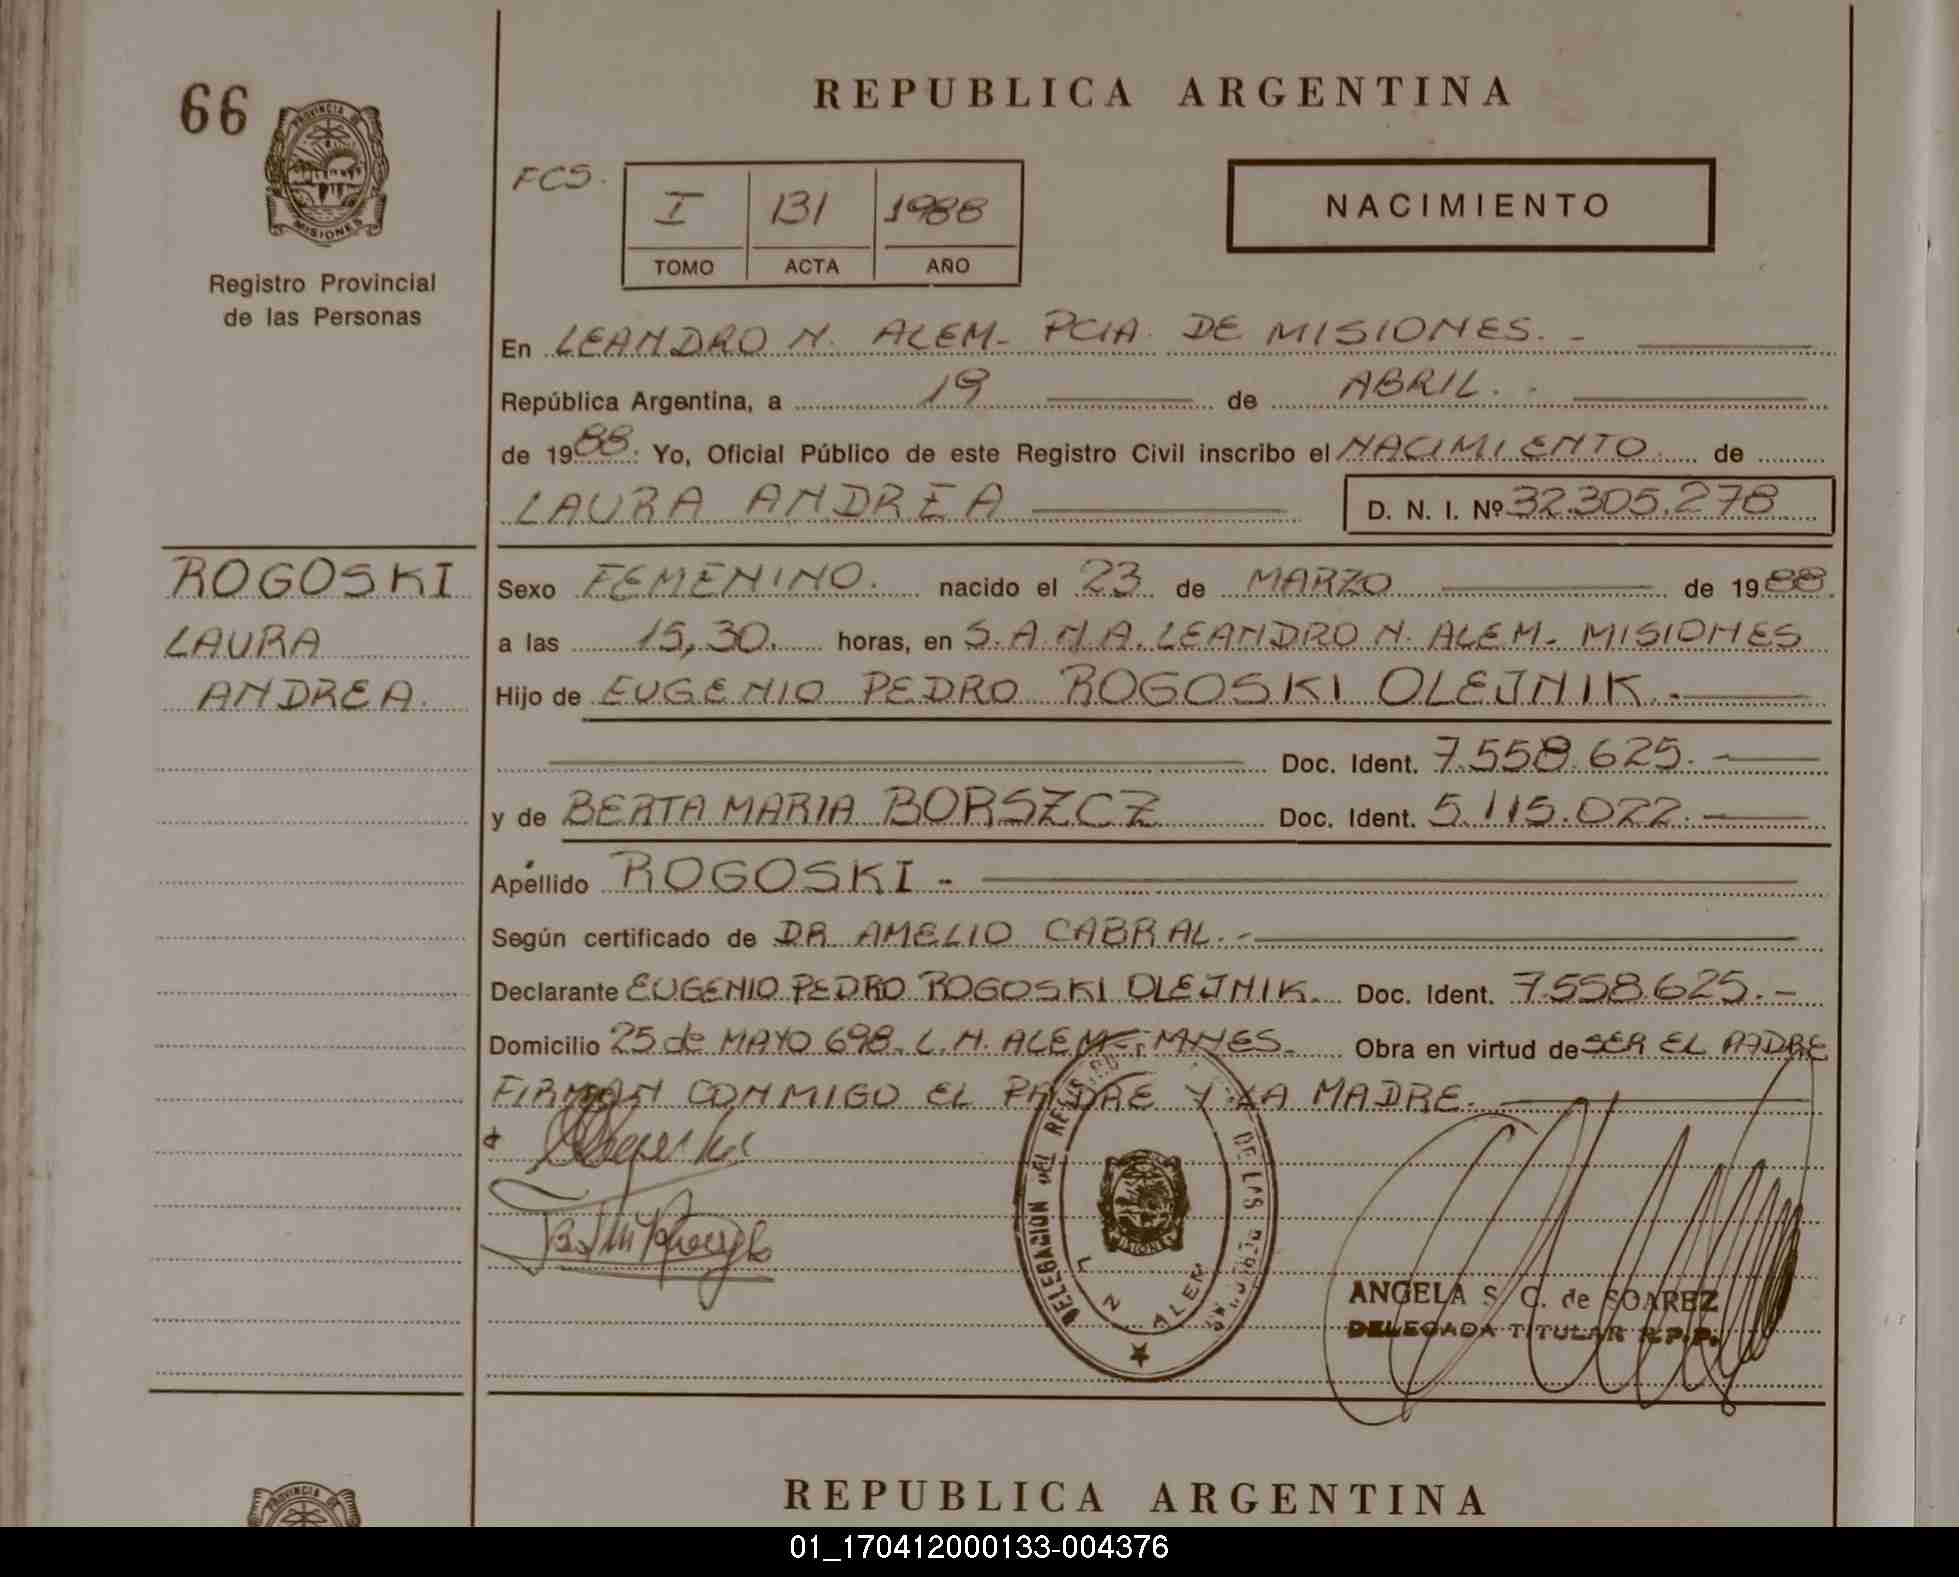 66
PROVINCIA DE
MISIONES
Registro Provincial
de las Personas
REPUBLICA ARGENTINA
FCS.
I 131 1988
TOMO ACTA AÑO
NACIMIENTO
En LEANDRO N. ALEM - PCIA. DE MISIONES. -
República Argentina, a 19 de ABRIL.
de 1988. Yo, Oficial Público de este Registro Civil inscribo el NACIMIENTO de
LAURA ANDREA D. N. I. Nº 32.305.278
ROGOSKI
LAURA
ANDREA.
Sexo FEMENINO. nacido el 23 de MARZO de 1988.
a las 15,30. horas, en S.A.M.A. LEANDRO N. ALEM - MISIONES
Hijo de EUGENIO PEDRO ROGOSKI OLEJNIK.-
Doc. Ident. 7.558.625.
y de BERTA MARIA BORSZCZ Doc. Ident. 5.115.022.
Apellido ROGOSKI -
Según certificado de DR AMELIO CABRAL. -
Declarante EUGENIO PEDRO ROGOSKI OLEJNIK. Doc. Ident. 7.558.625.-
Domicilio 25 de MAYO 698. L. N. ALEM - MNES. Obra en virtud de SER EL PADRE
FIRMAN CONMIGO EL PADRE Y LA MADRE.
DELEGACION DEL REGISTRO DE LAS PERSONAS
L N ALEM
MISIONES
ANGELA S. C. de SOAREZ
DELEGADA TITULAR R.P.P.
PROVINCIA DE
REPUBLICA ARGENTINA
01_170412000133-004376